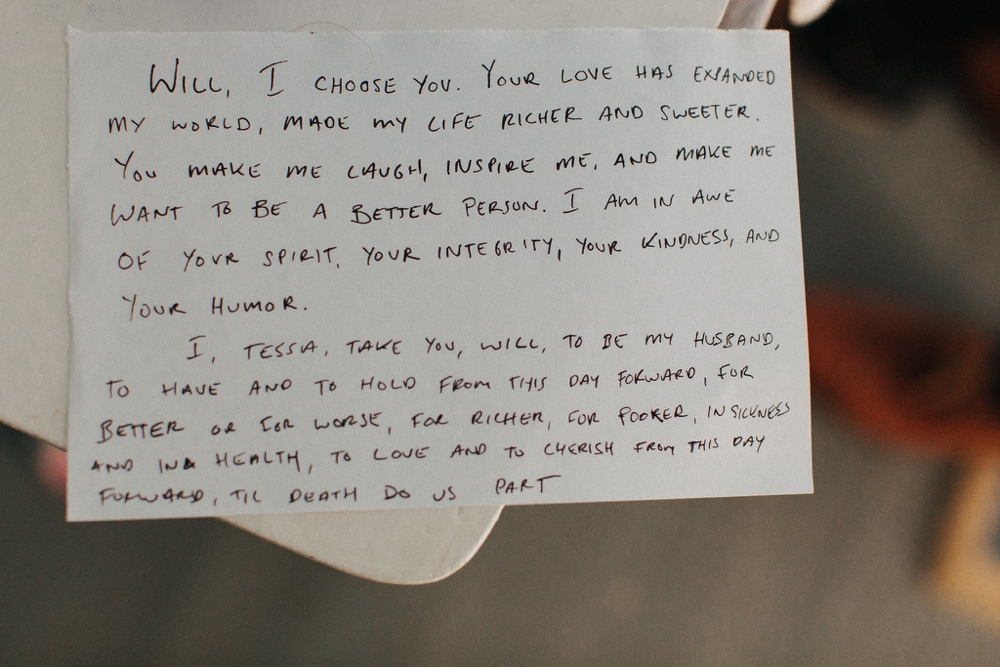 WILL, I CHOOSE YOU. YOUR LOVE HAS EXPANDED
MY WORLD, MADE MY LIFE RICHER AND SWEETER.
YOU MAKE ME LAUGH, INSPIRE ME, AND MAKE ME
WANT TO BE A BETTER PERSON. I AM IN AWE
OF YOUR SPIRIT, YOUR INTEGRITY, YOUR KINDNESS, AND
YOUR HUMOR.
I, TESSIA, TAKE YOU, WILL, TO BE MY HUSBAND,
TO HAVE AND TO HOLD FROM THIS DAY FORWARD, FOR
BETTER OR FOR WORSE, FOR RICHER, FOR POORER, IN SICKNESS
AND IN HEALTH, TO LOVE AND TO CHERISH FROM THIS DAY
FORWARD, TIL DEATH DO US PART